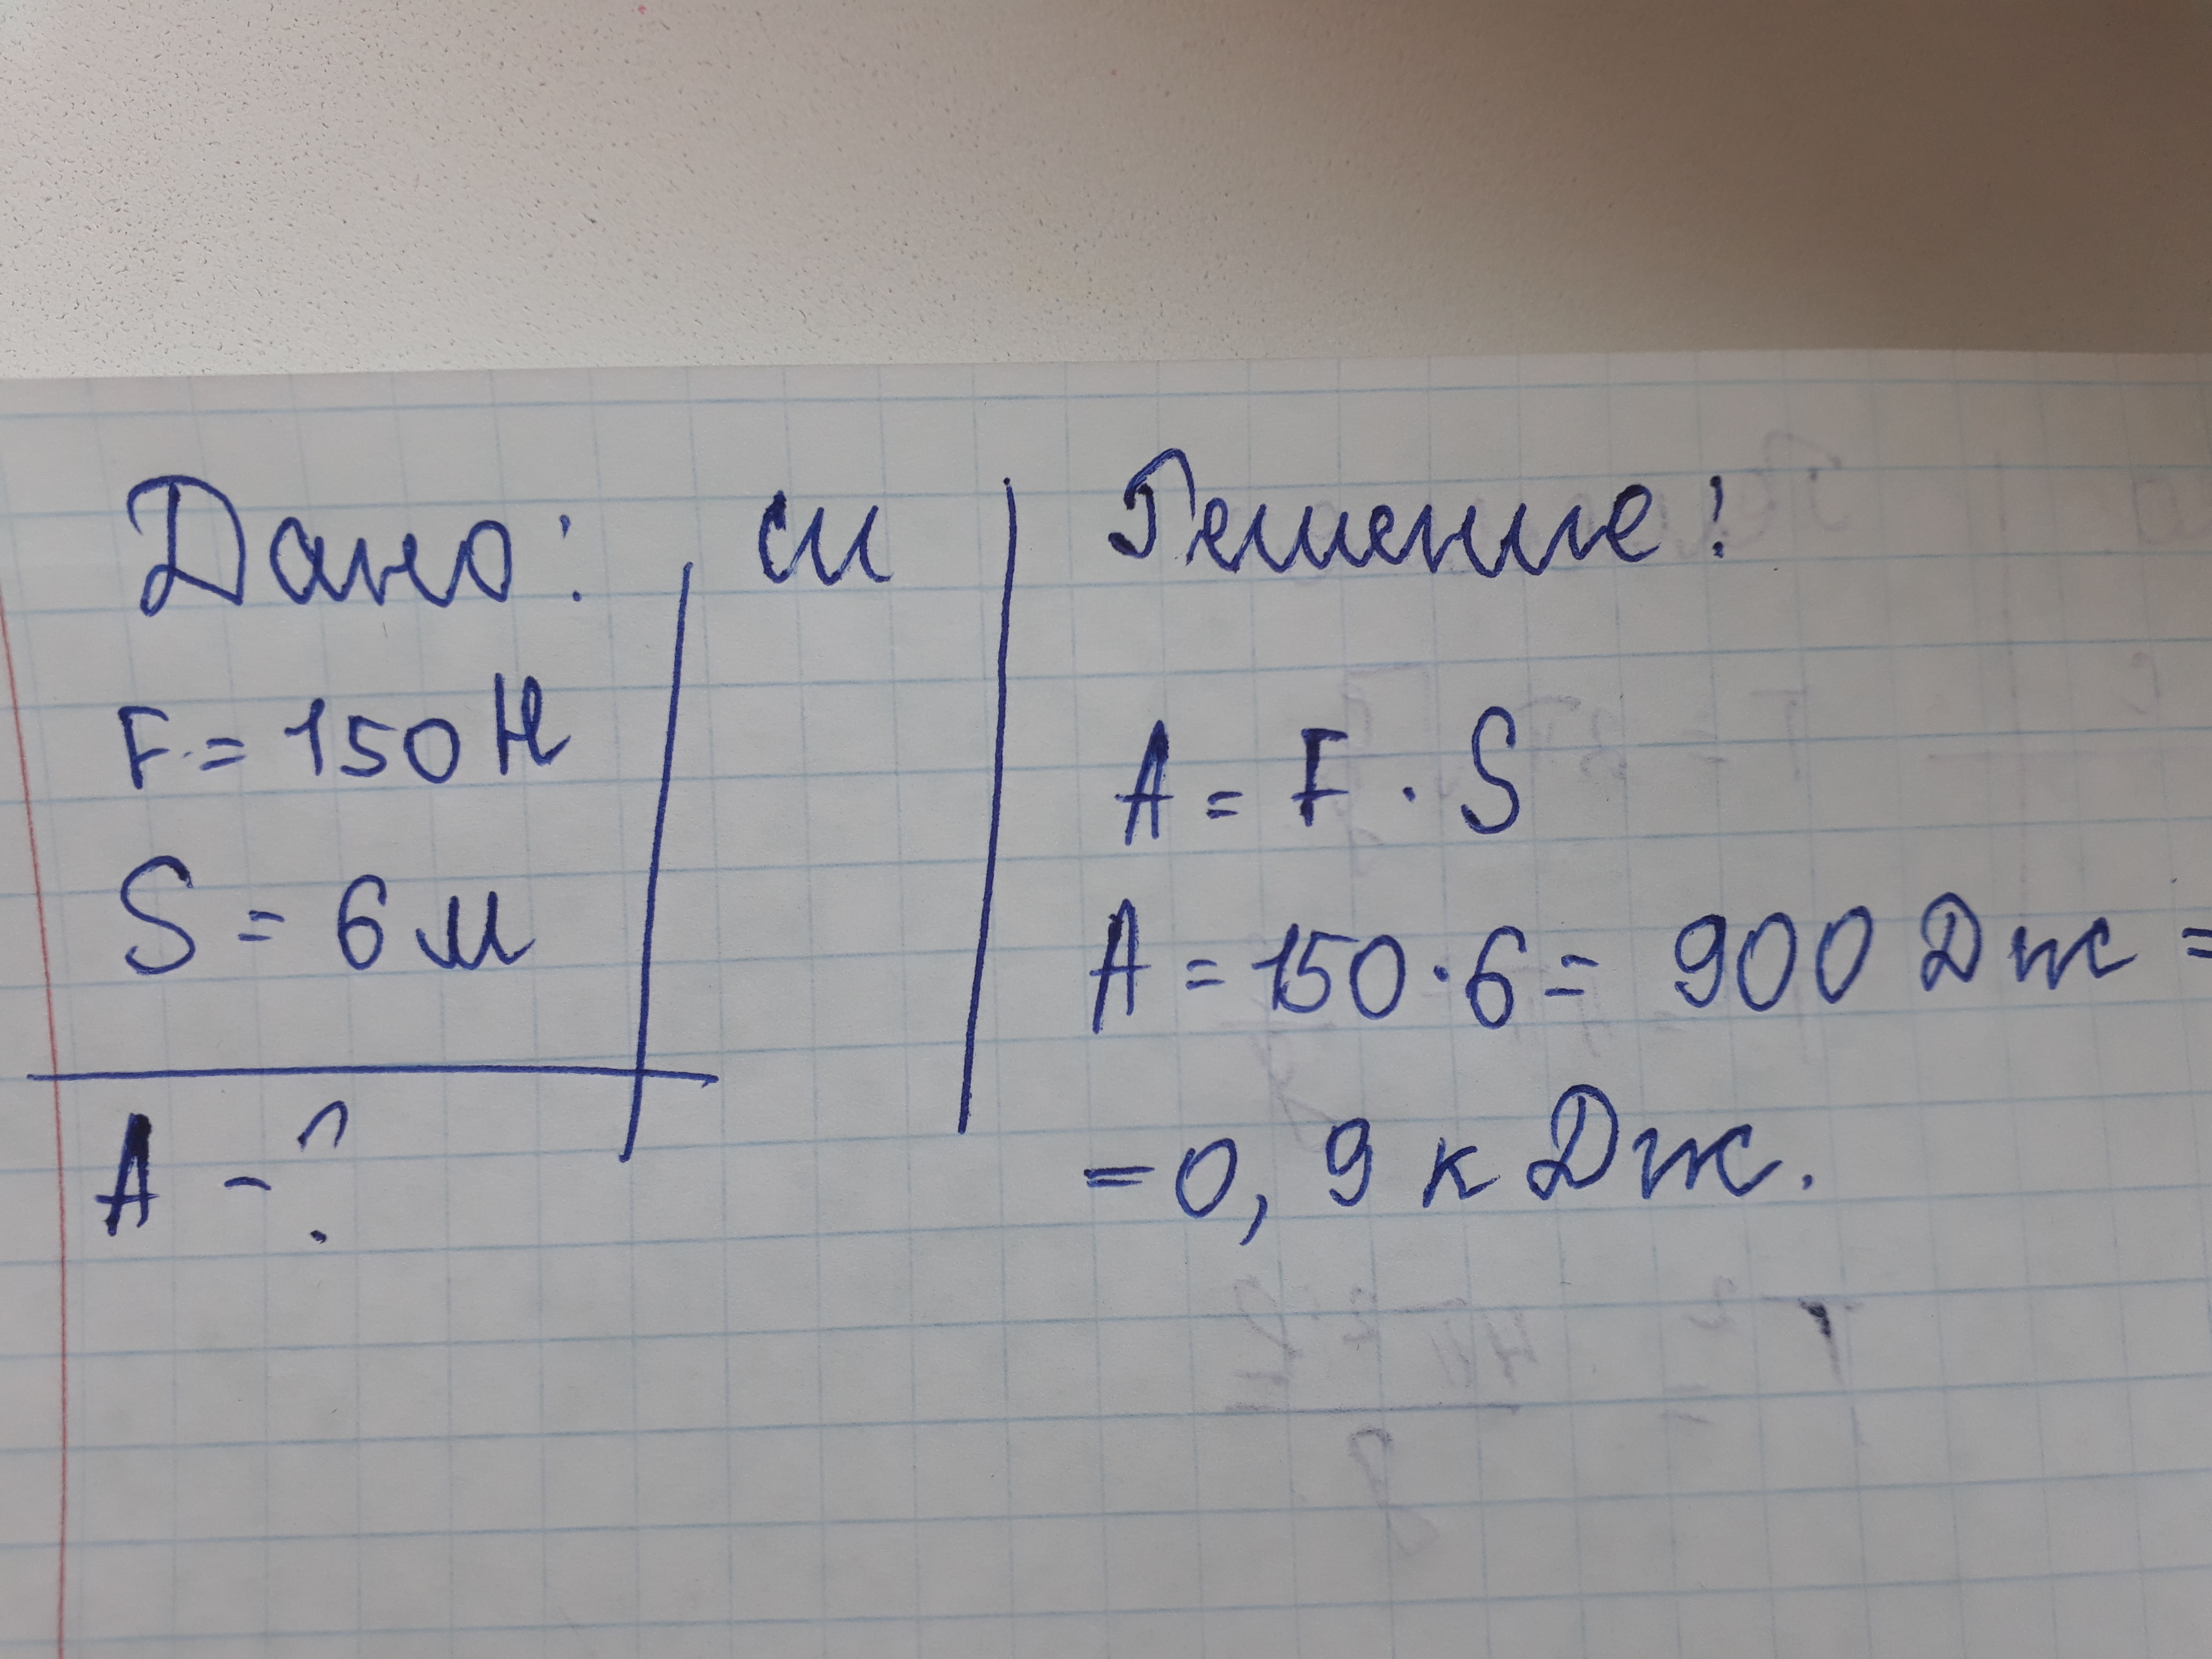 Дано: си Решение:
F = 150 Н
S = 6 м
A - ?
A = F · S
A = 150 · 6 = 900 Дж =
= 0,9 кДж.